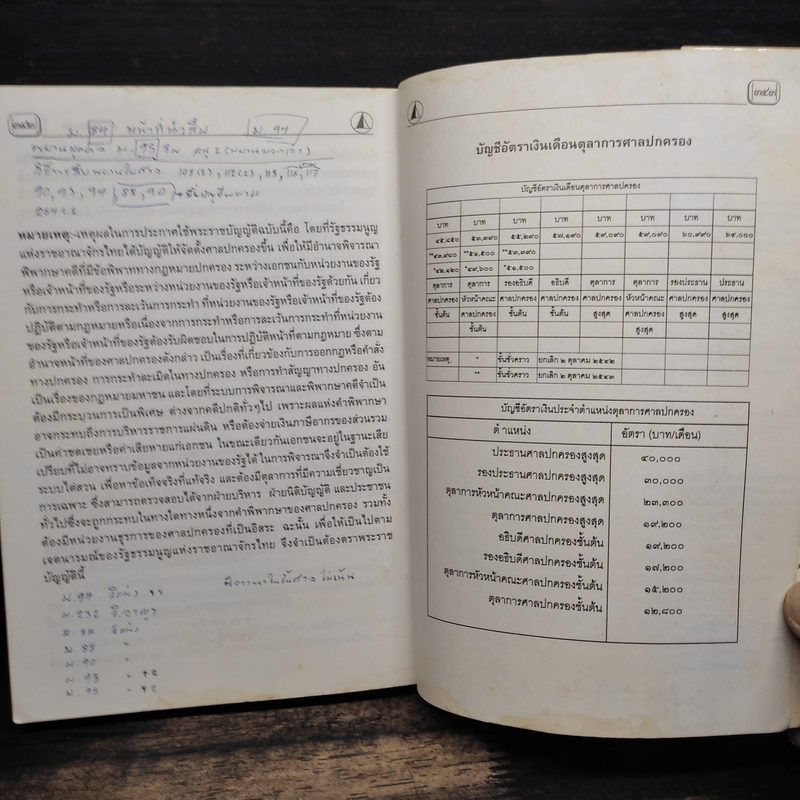 ๓๔๒
ม. 84 หน้าที่นำสืบ ม. 94
90, 93, 94 88, 90
หมายเหตุ:-เหตุผลในการประกาศใช้พระราชบัญญัติฉบับนี้คือ โดยที่รัฐธรรมนูญ
แห่งราชอาณาจักรไทยได้บัญญัติให้จัดตั้งศาลปกครองขึ้น เพื่อให้มีอำนาจพิจารณา
พิพากษาคดีที่มีข้อพิพาททางกฎหมายปกครอง ระหว่างเอกชนกับหน่วยงานของรัฐ
หรือเจ้าหน้าที่ของรัฐหรือระหว่างหน่วยงานของรัฐหรือเจ้าหน้าที่ของรัฐด้วยกัน เกี่ยว
กับการกระทำหรือการละเว้นการกระทำ ที่หน่วยงานของรัฐหรือเจ้าหน้าที่ของรัฐต้อง
ปฏิบัติตามกฎหมายหรือเนื่องจากการกระทำหรือการละเว้นการกระทำที่หน่วยงาน
ของรัฐหรือเจ้าหน้าที่ของรัฐต้องรับผิดชอบในการปฏิบัติหน้าที่ตามกฎหมาย ซึ่งตาม
อำนาจหน้าที่ของศาลปกครองดังกล่าว เป็นเรื่องที่เกี่ยวข้องกับการออกกฎหรือคำสั่ง
ทางปกครอง การกระทำละเมิดในทางปกครอง หรือการทำสัญญาทางปกครอง อัน
เป็นเรื่องของกฎหมายมหาชน และโดยที่ระบบการพิจารณาและพิพากษาคดีจำเป็น
ต้องมีกระบวนการเป็นพิเศษ ต่างจากคดีปกติทั่วๆไป เพราะผลแห่งคำพิพากษา
อาจกระทบถึงการบริหารราชการแผ่นดิน หรือต้องจ่ายเงินภาษีอากรของส่วนรวม
เป็นค่าชดเชยหรือค่าเสียหายแก่เอกชน ในขณะเดียวกันเอกชนจะอยู่ในฐานะเสีย
เปรียบที่ไม่อาจทราบข้อมูลจากหน่วยงานของรัฐได้ ในการพิจารณาจึงจำเป็นต้องใช้
ระบบไต่สวน เพื่อหาข้อเท็จจริงที่แท้จริง และต้องมีตุลาการที่มีความเชี่ยวชาญเป็น
การเฉพาะ ซึ่งสามารถตรวจสอบได้จากฝ่ายบริหาร ฝ่ายนิติบัญญัติ และประชาชน
ทั่วไปซึ่งจะถูกกระทบในทางใดทางหนึ่งจากคำพิพากษาของศาลปกครอง รวมทั้ง
ต้องมีหน่วยงานธุรการของศาลปกครองที่เป็นอิสระ ฉะนั้น เพื่อให้เป็นไปตาม
เจตนารมณ์ของรัฐธรรมนูญแห่งราชอาณาจักรไทย จึงจำเป็นต้องตราพระราช
บัญญัตินี้
ม. 232 วิ.อาญา
ม. 88 "
ม. 90 "
ม. 93 "
ม. 95 "
๓๔๓
บัญชีอัตราเงินเดือนตุลาการศาลปกครอง
บัญชีอัตราเงินเดือนตุลาการศาลปกครอง
บาท บาท บาท บาท บาท บาท บาท บาท
๔๕,๔๕๐ ๕๓,๓๙๐ ๕๕,๒๙๐ ๕๗,๑๙๐ ๕๙,๐๙๐ ๕๙,๐๙๐ ๖๐,๙๙๐ ๖๔,๐๐๐
**๔๓,๘๘๐ **๕๑,๕๐๐ **๕๓,๓๙๐
*๔๒,๑๒๐ *๔๙,๖๐๐ *๕๑,๕๐๐
ตุลาการ ตุลาการ รองอธิบดี อธิบดี ตุลาการ ตุลาการ รองประธาน ประธาน
ศาลปกครอง หัวหน้าคณะ ศาลปกครอง ศาลปกครอง ศาลปกครอง หัวหน้าคณะ ศาลปกครอง ศาลปกครอง
ชั้นต้น ศาลปกครอง ชั้นต้น ชั้นต้น สูงสุด ศาลปกครอง สูงสุด สูงสุด
ชั้นต้น สูงสุด
หมายเหตุ. * ขั้นชั่วคราว ยกเลิก ๒ ตุลาคม ๒๕๔๒
** ขั้นชั่วคราว ยกเลิก ๒ ตุลาคม ๒๕๔๓
บัญชีอัตราเงินประจำตำแหน่งตุลาการศาลปกครอง
ตำแหน่ง อัตรา (บาท/เดือน)
ประธานศาลปกครองสูงสุด ๔๐,๐๐๐
รองประธานศาลปกครองสูงสุด ๓๐,๐๐๐
ตุลาการหัวหน้าคณะศาลปกครองสูงสุด ๒๓,๓๐๐
ตุลาการศาลปกครองสูงสุด ๑๙,๒๐๐
อธิบดีศาลปกครองชั้นต้น ๑๙,๒๐๐
รองอธิบดีศาลปกครองชั้นต้น ๑๗,๒๐๐
ตุลาการหัวหน้าคณะศาลปกครองชั้นต้น ๑๕,๒๐๐
ตุลาการศาลปกครองชั้นต้น ๑๒,๘๐๐